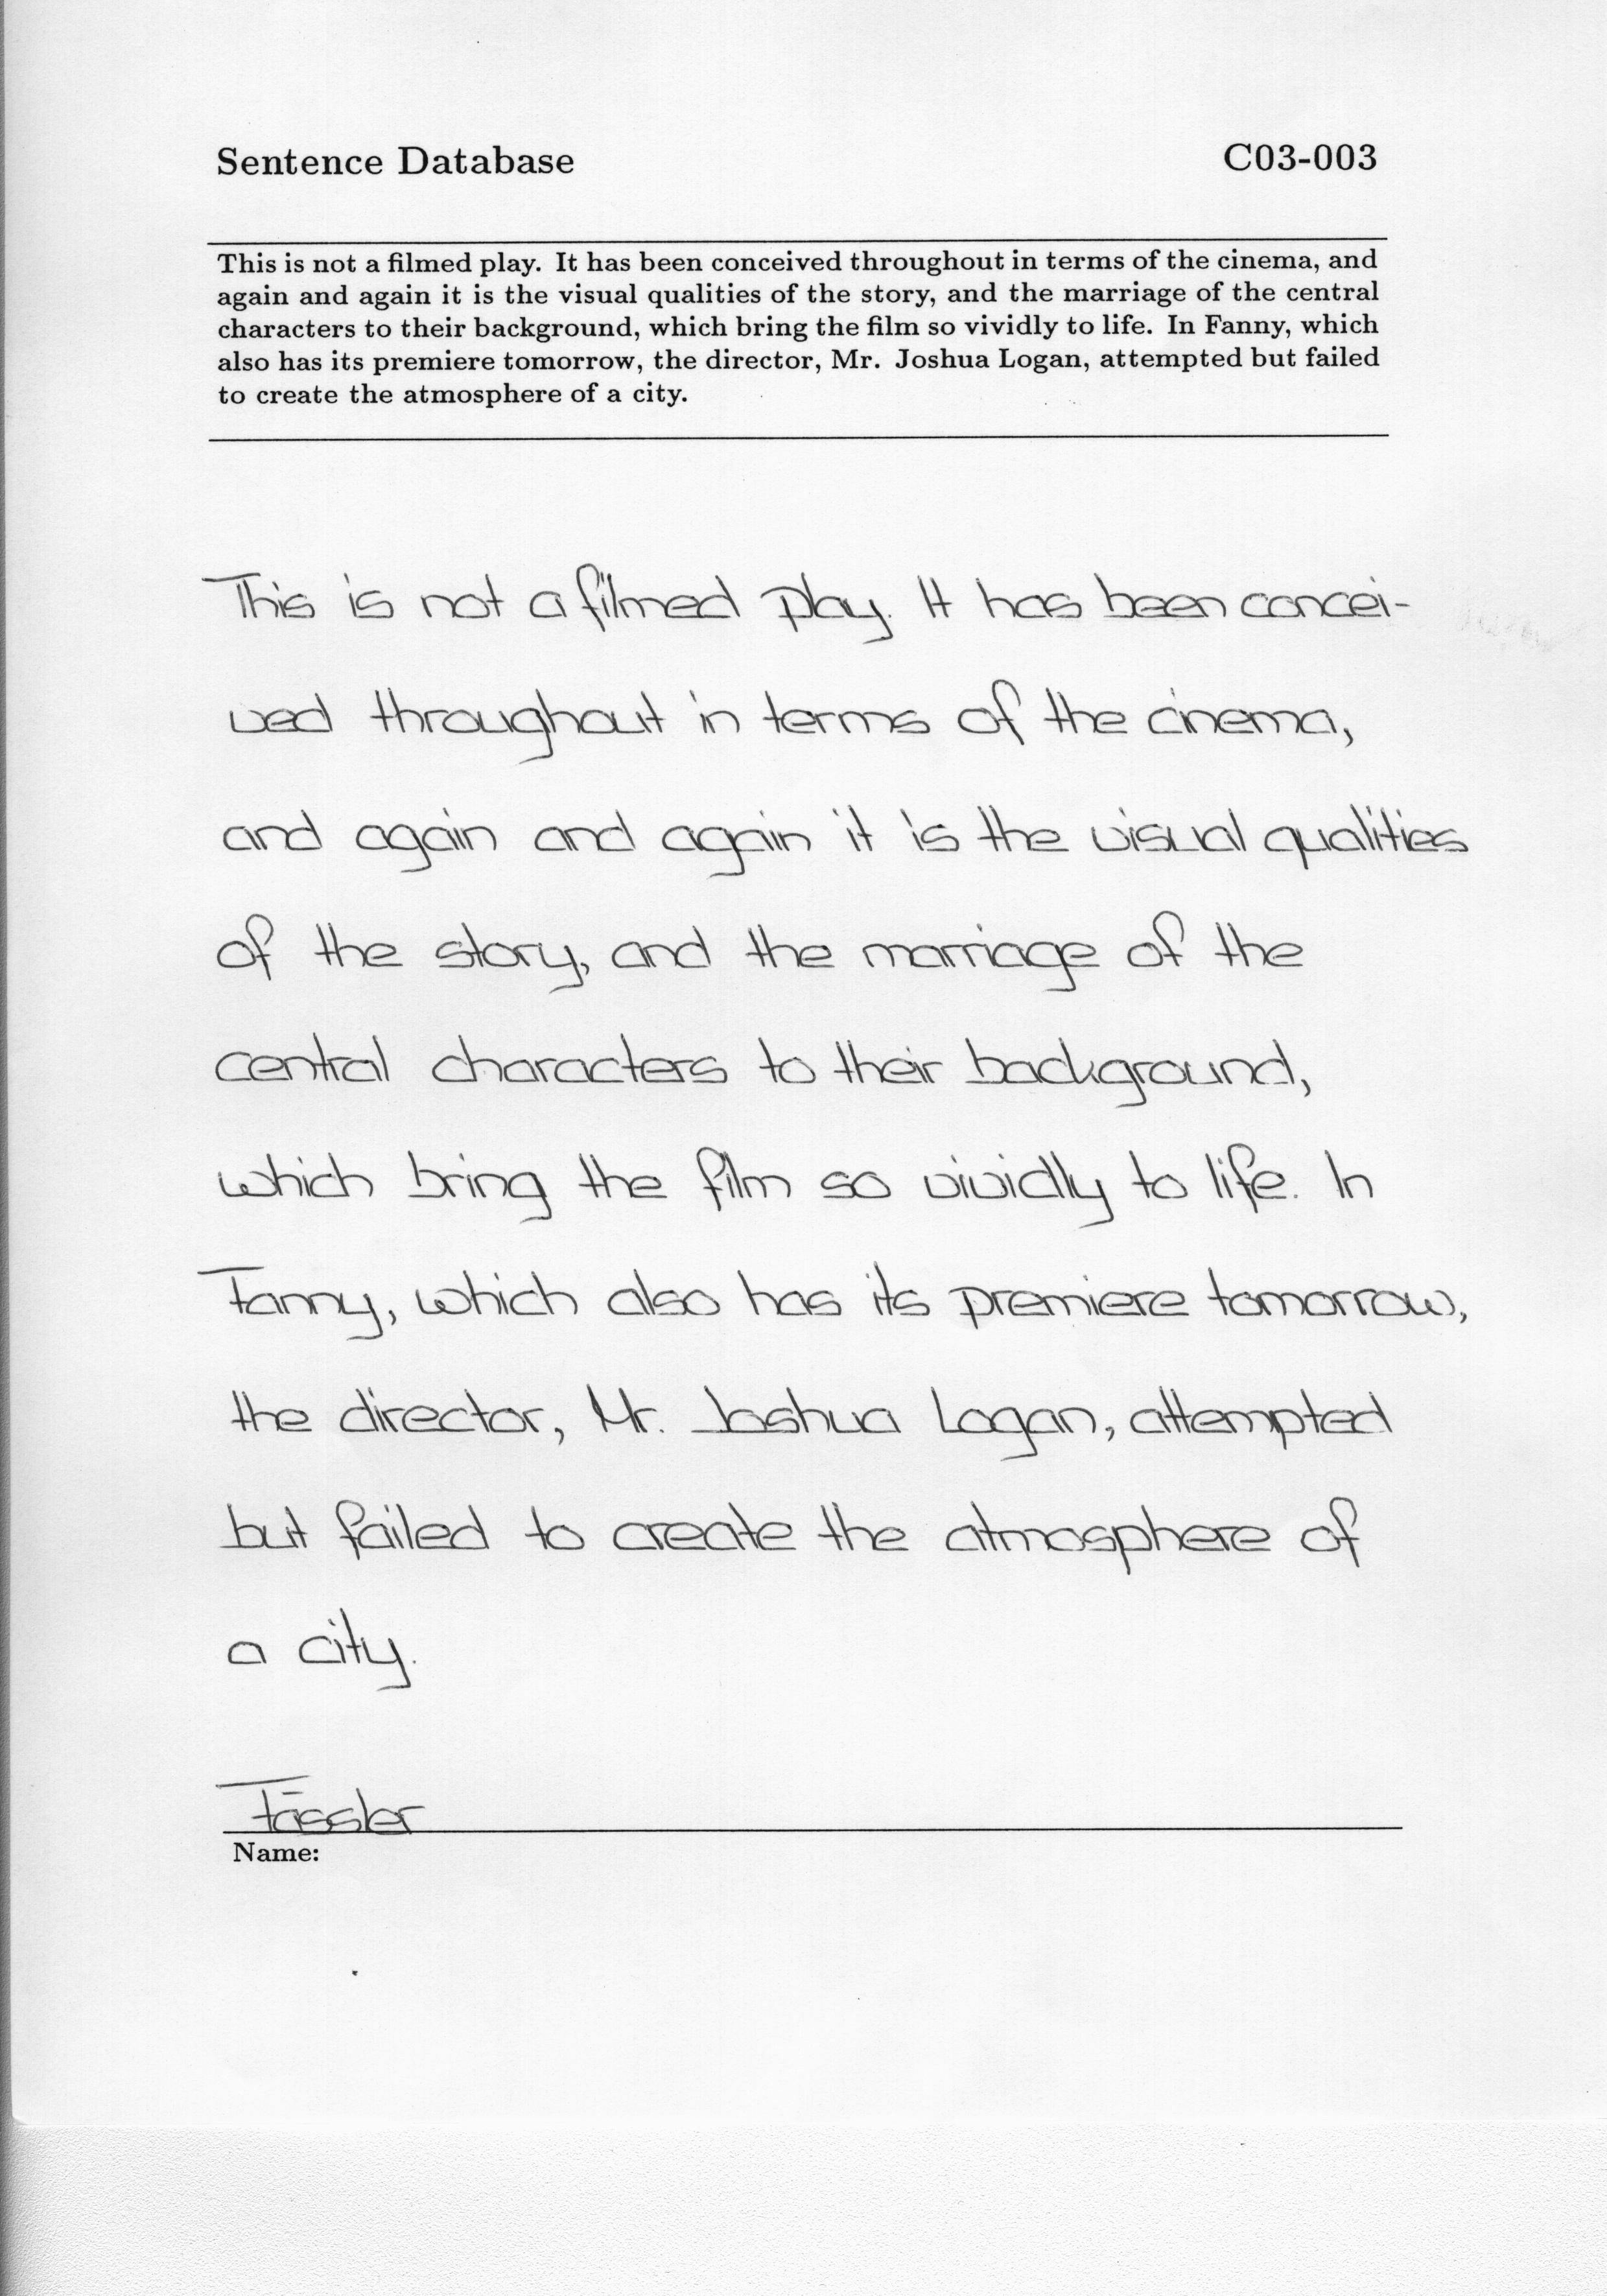 Sentence Database C03-003
This is not a filmed play. It has been conceived throughout in terms of the cinema, and
again and again it is the visual qualities of the story, and the marriage of the central
characters to their background, which bring the film so vividly to life. In Fanny, which
also has its premiere tomorrow, the director, Mr. Joshua Logan, attempted but failed
to create the atmosphere of a city.
This is not a filmed play. It has been concei-
ved throughout in terms of the cinema,
and again and again it is the visual qualities
of the story, and the marriage of the
central characters to their background,
which bring the film so vividly to life. In
Fanny, which also has its premiere tomorrow,
the director, Mr. Joshua Logan, attempted
but failed to create the atmosphere of
a city.
Fässler
Name: